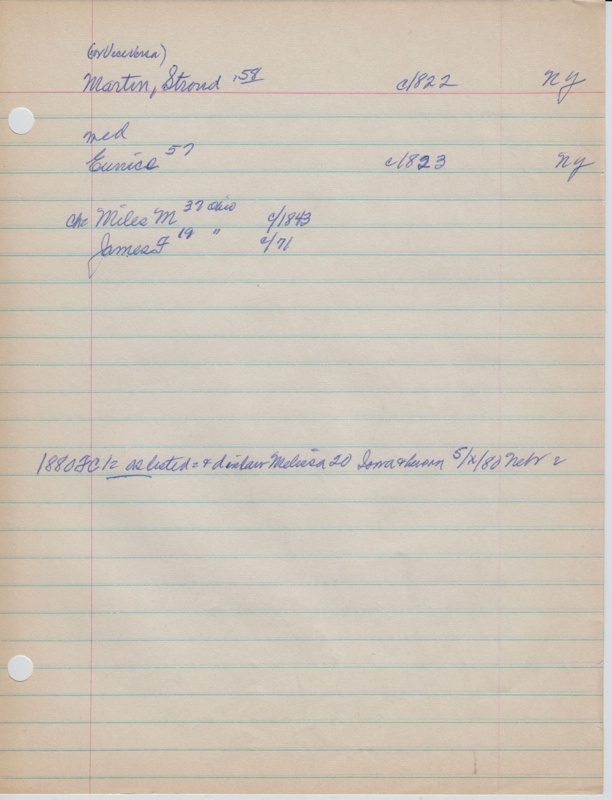 (or Vice Versa)
Martin, Stroud 58 c/1822 NY
med
Eunice 57 c/1823 NY
ch= Miles M 37 Ohio c/1843
James F 19 " c/71
1880 FC 1= as listed = & dinlaw Melissa 20 Iowa & 5/x/80 Nebr =